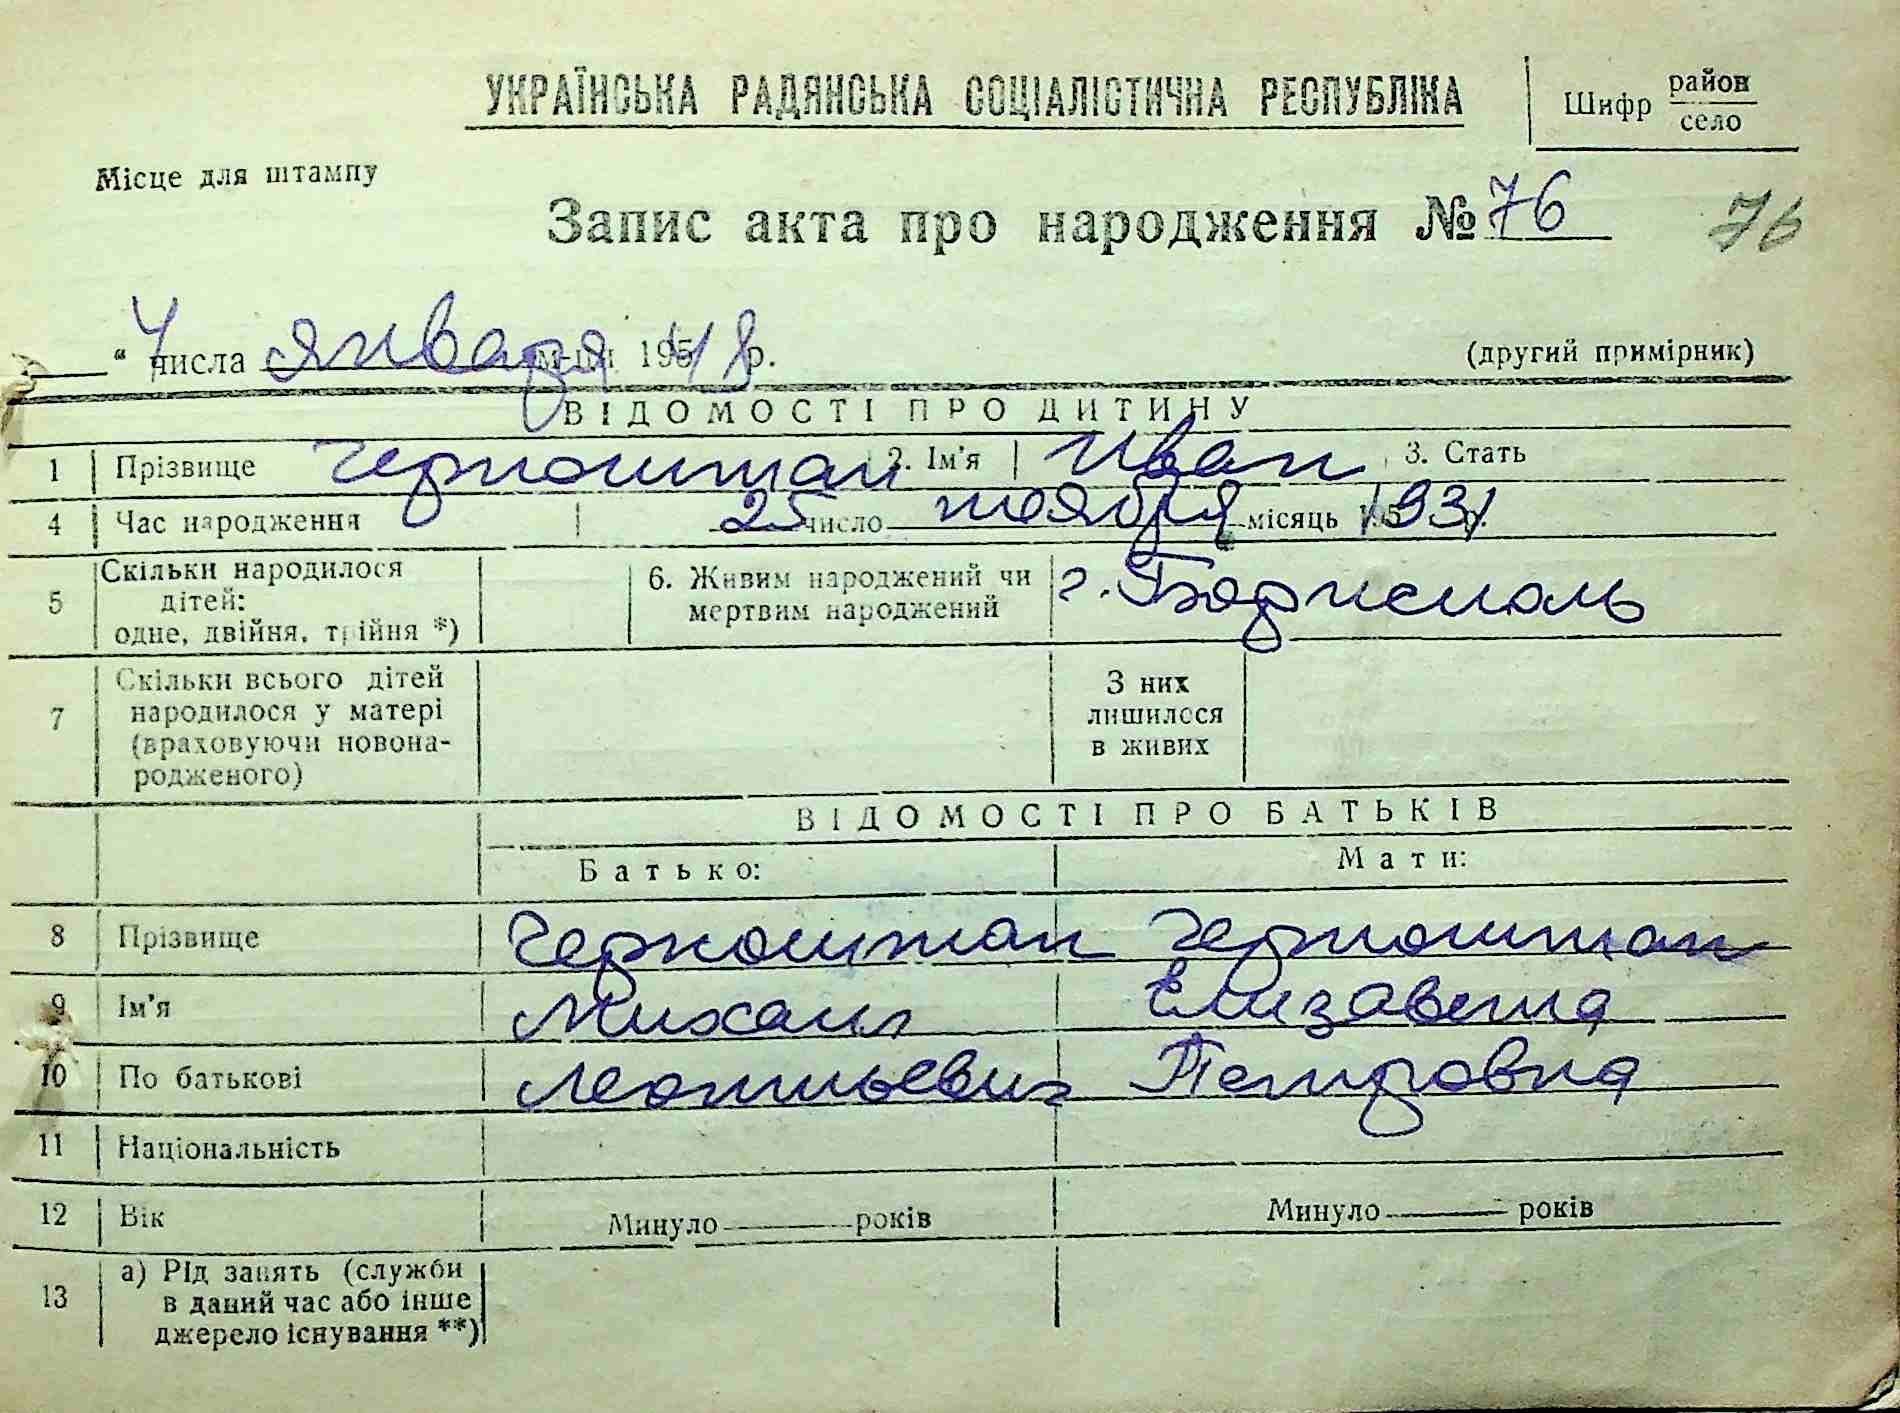 УКРАЇНСЬКА РАДЯНСЬКА СОЦІАЛІСТИЧНА РЕСПУБЛІКА
Шифр район
село
Місце для штампу
Запис акта про народження № 76
76
" 4 числа января м-ця 195 48 р.
(другий примірник)
ВІДОМОСТІ ПРО ДИТИНУ
1 Прізвище Черноштан 2. Ім'я Иван 3. Стать
4 Час народження 25 число ноября місяць 195 1931 р.
5 Скільки народилося дітей: одне, двійня, трійня *) 6. Живим народжений чи мертвим народжений г. Борисполь
7 Скільки всього дітей народилося у матері (враховуючи новона-родженого) З них лишилося в живих
ВІДОМОСТІ ПРО БАТЬКІВ
Батько: Мати:
8 Прізвище Черноштан Черноштан
9 Ім'я Михаил Елизавета
10 По батькові Леонтьевич Петровна
11 Національність
12 Вік Минуло років Минуло років
13 а) Рід занять (служби в даний час або інше джерело існування **)